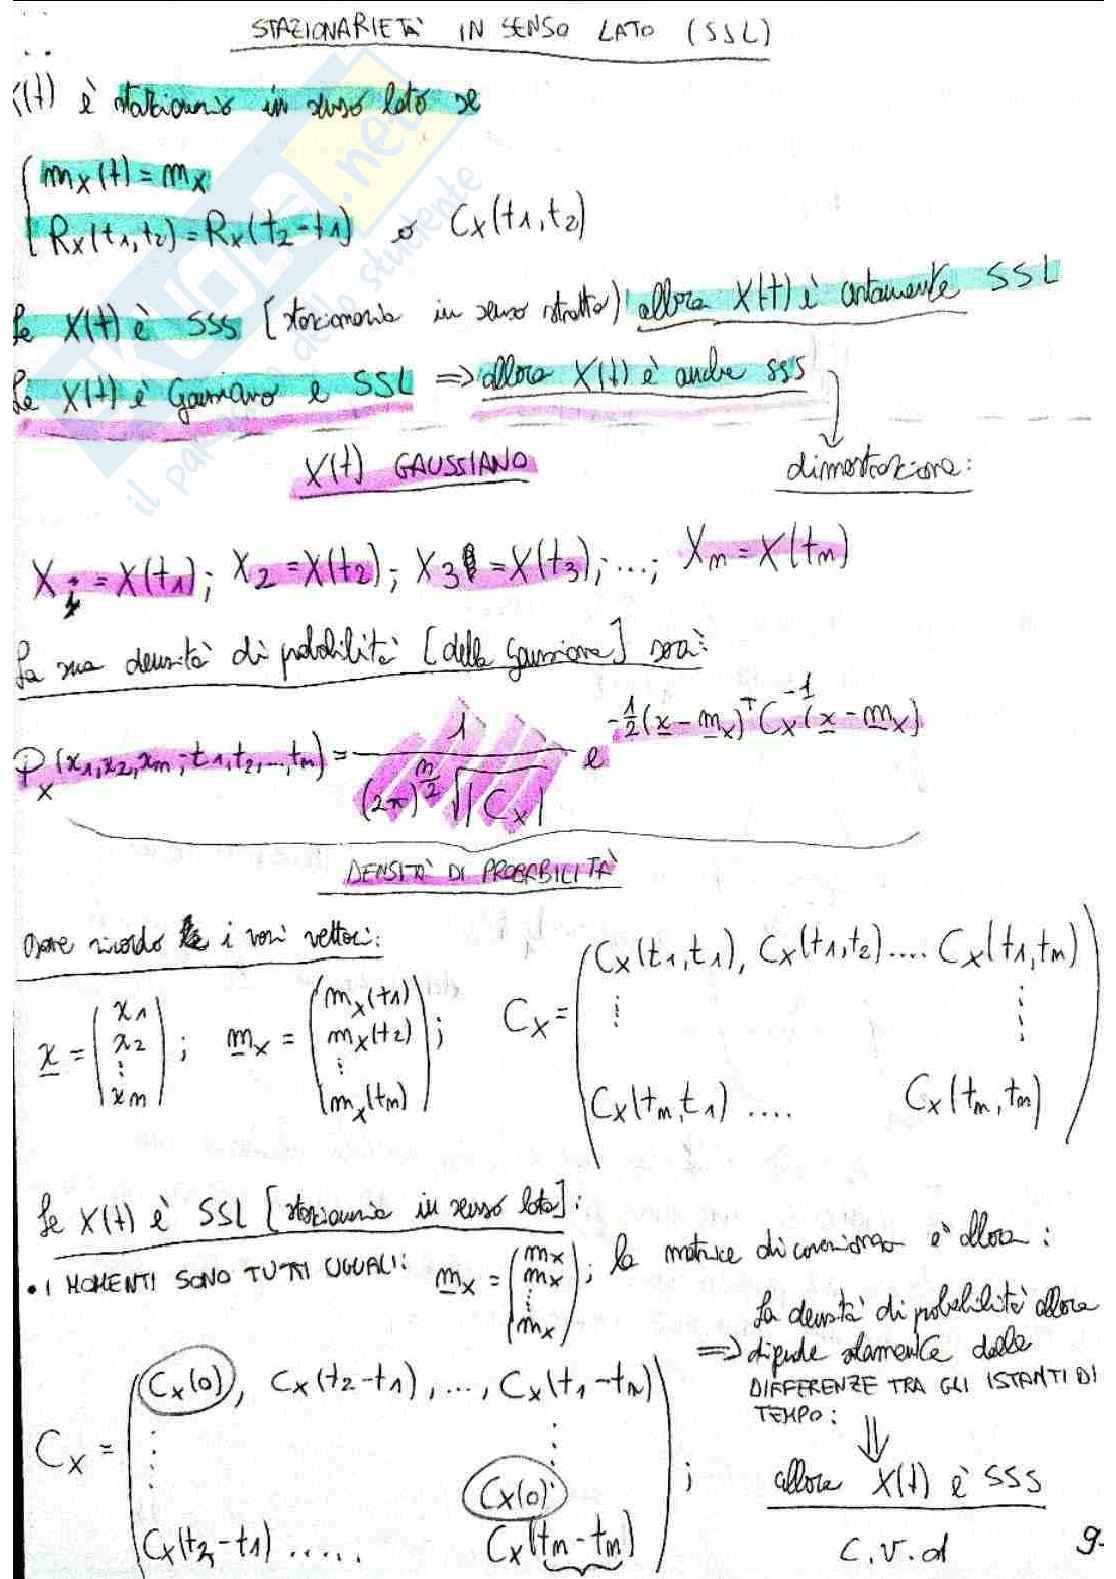 STAZIONARIETA' IN SENSO LATO (SSL)
X(t) è stazionario in senso lato se
{ m_X(t) = m_X
R_X(t1,t2) = R_X(t2-t1) o C_X(t1,t2)
Se X(t) è SSS [stazionario in senso stretto) allora X(t) è certamente SSL
Se X(t) è Gaussiano e SSL => allora X(t) è anche SSS
X(t) GAUSSIANO
dimostrazione:
X1 = X(t1); X2 = X(t2); X3 = X(t3); ...; Xm = X(tm)
La sua densità di probabilità [della gaussiana] sarà:
P_X(x1,x2,xm; t1,t2,...,tm) = 1 / ((2π)^(n/2) √|C_X|) e^(-1/2 (x - m_X)^T C_X^-1 (x - m_X))
DENSITA' DI PROBABILITA'
dove ricordo i vari vettori:
x = (x1 x2 ⋮ xm); m_X = (m_X(t1) m_X(t2) ⋮ m_X(tm)); C_X = (C_X(t1,t1), C_X(t1,t2) .... C_X(t1,tm)
⋮ ⋮
C_X(tm,t1) .... C_X(tm,tm))
Se X(t) è SSL [stazionario in senso lato]:
• I MOMENTI SONO TUTTI UGUALI: m_X = (m_X m_X ⋮ m_X); la matrice di covarianza è allora:
C_X = (C_X(0), C_X(t2-t1), ..., C_X(t1-tn)
⋮ ⋮
C_X(0)
C_X(t2-t1) ..... C_X(tm-tm));
=> La densità di probabilità allora
dipende solamente dalle
DIFFERENZE TRA GLI ISTANTI DI
TEMPO:
⇓
allora X(t) è SSS
C.V.d
9
SKUOLA.net
il paradiso dello studente